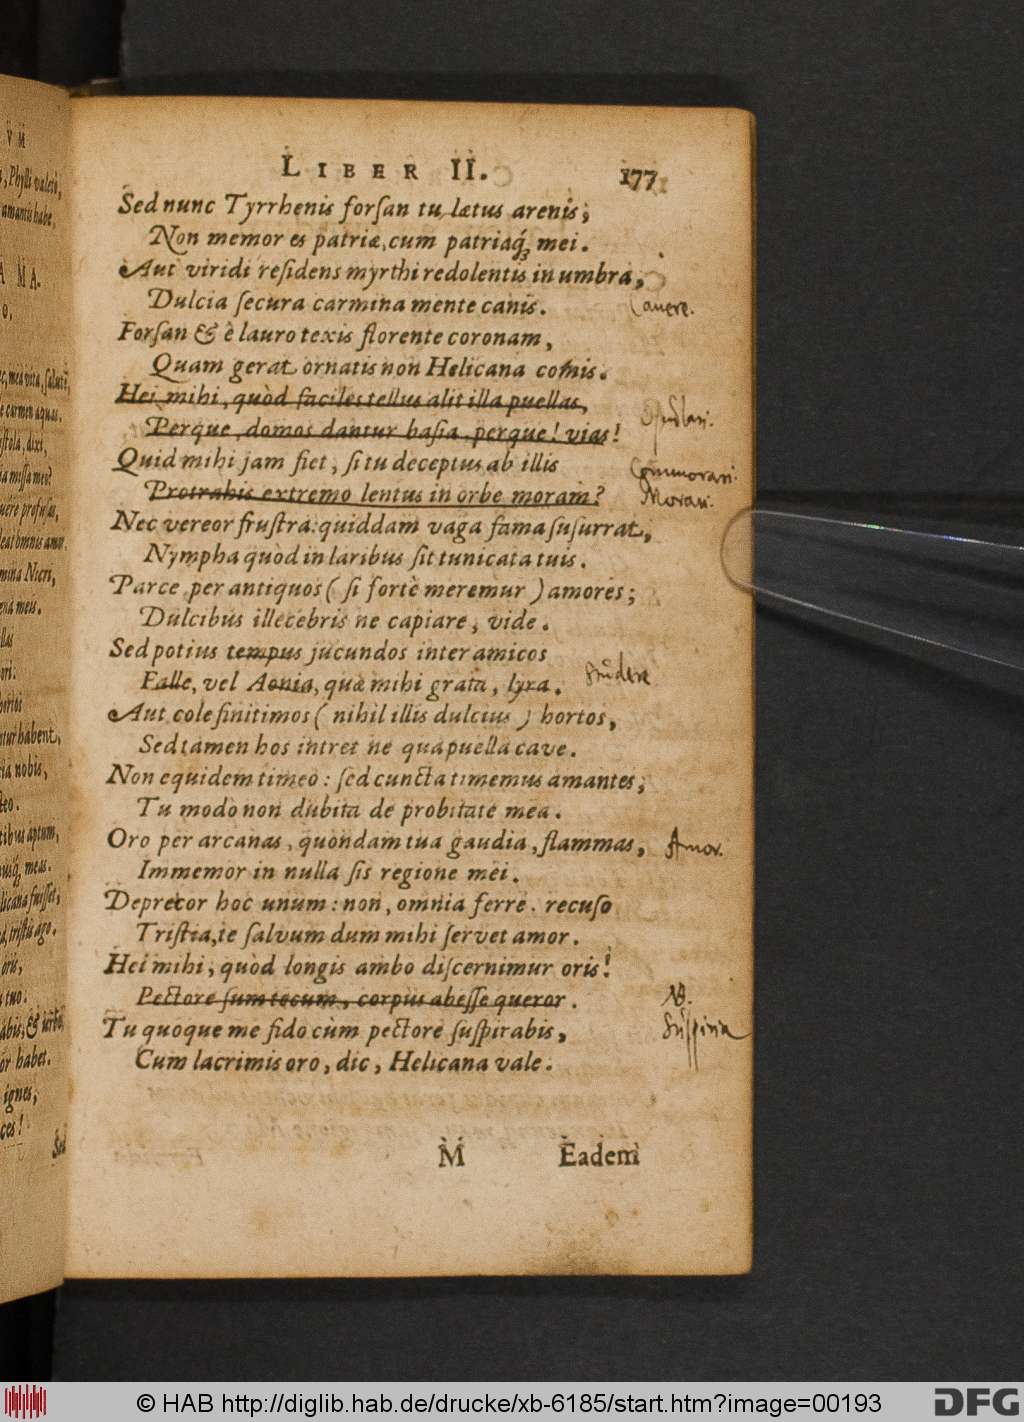 V M
, Phylli valeto,
amantis habe.
A M A.
O,
carmen aquas.
stola, dixi,
meis.
oris,
tuo.
ignes,
ces!
Sed
LIBER II. 177
Sed nunc Tyrrhenis forſan tu lætus arenis;
Non memor es patriæ, cum patriaq́; mei.
Aut viridi reſidens myrthi redolentis in umbra,
Dulcia ſecura carmina mente canis.
Cavere.
Forſan & è lauro texis florente coronam,
Quam gerat ornatis non Helicana comis.
Hei mihi, quòd faciles tellus alit illa puellas,
Perque, domos dantur baſia, perque! vias!
Quid mihi jam fiet, ſi tu deceptus ab illis
Commorari.
Protrahis extremo lentus in orbe moram?
Morari.
Nec vereor fruſtra: quiddam vaga fama ſuſurrat,
Nympha quòd in laribus ſit tunicata tuis.
Parce per antiquos (ſi fortè meremur) amores;
Dulcibus illecebris ne capiare, vide.
Sed potius tempus jucundos inter amicos
Falle, vel Aonia, quæ mihi grata, lyra.
Studere
Aut cole finitimos (nihil illis dulcius) hortos,
Sed tamen hos intret ne qua puella cave.
Non equidem timeo: ſed cuncta timemus amantes;
Tu modò non dubita de probitate mea.
Oro per arcanas, quondam tua gaudia, flammas,
Amor.
Immemor in nulla ſis regione mei.
Deprecor hoc unum: non, omnia ferre. recuſo
Triſtia, te ſalvum dum mihi ſervet amor.
Hei mihi, quòd longis ambo diſcernimur oris!
Pectore ſum tecum, corpus abeſſe queror.
NB.
Tu quoque me fido cùm pectore ſuſpirabis,
Suſpiria
Cum lacrimis oro, dic, Helicana vale.
M Eadem
© HAB http://diglib.hab.de/drucke/xb-6185/start.htm?image=00193
DFG